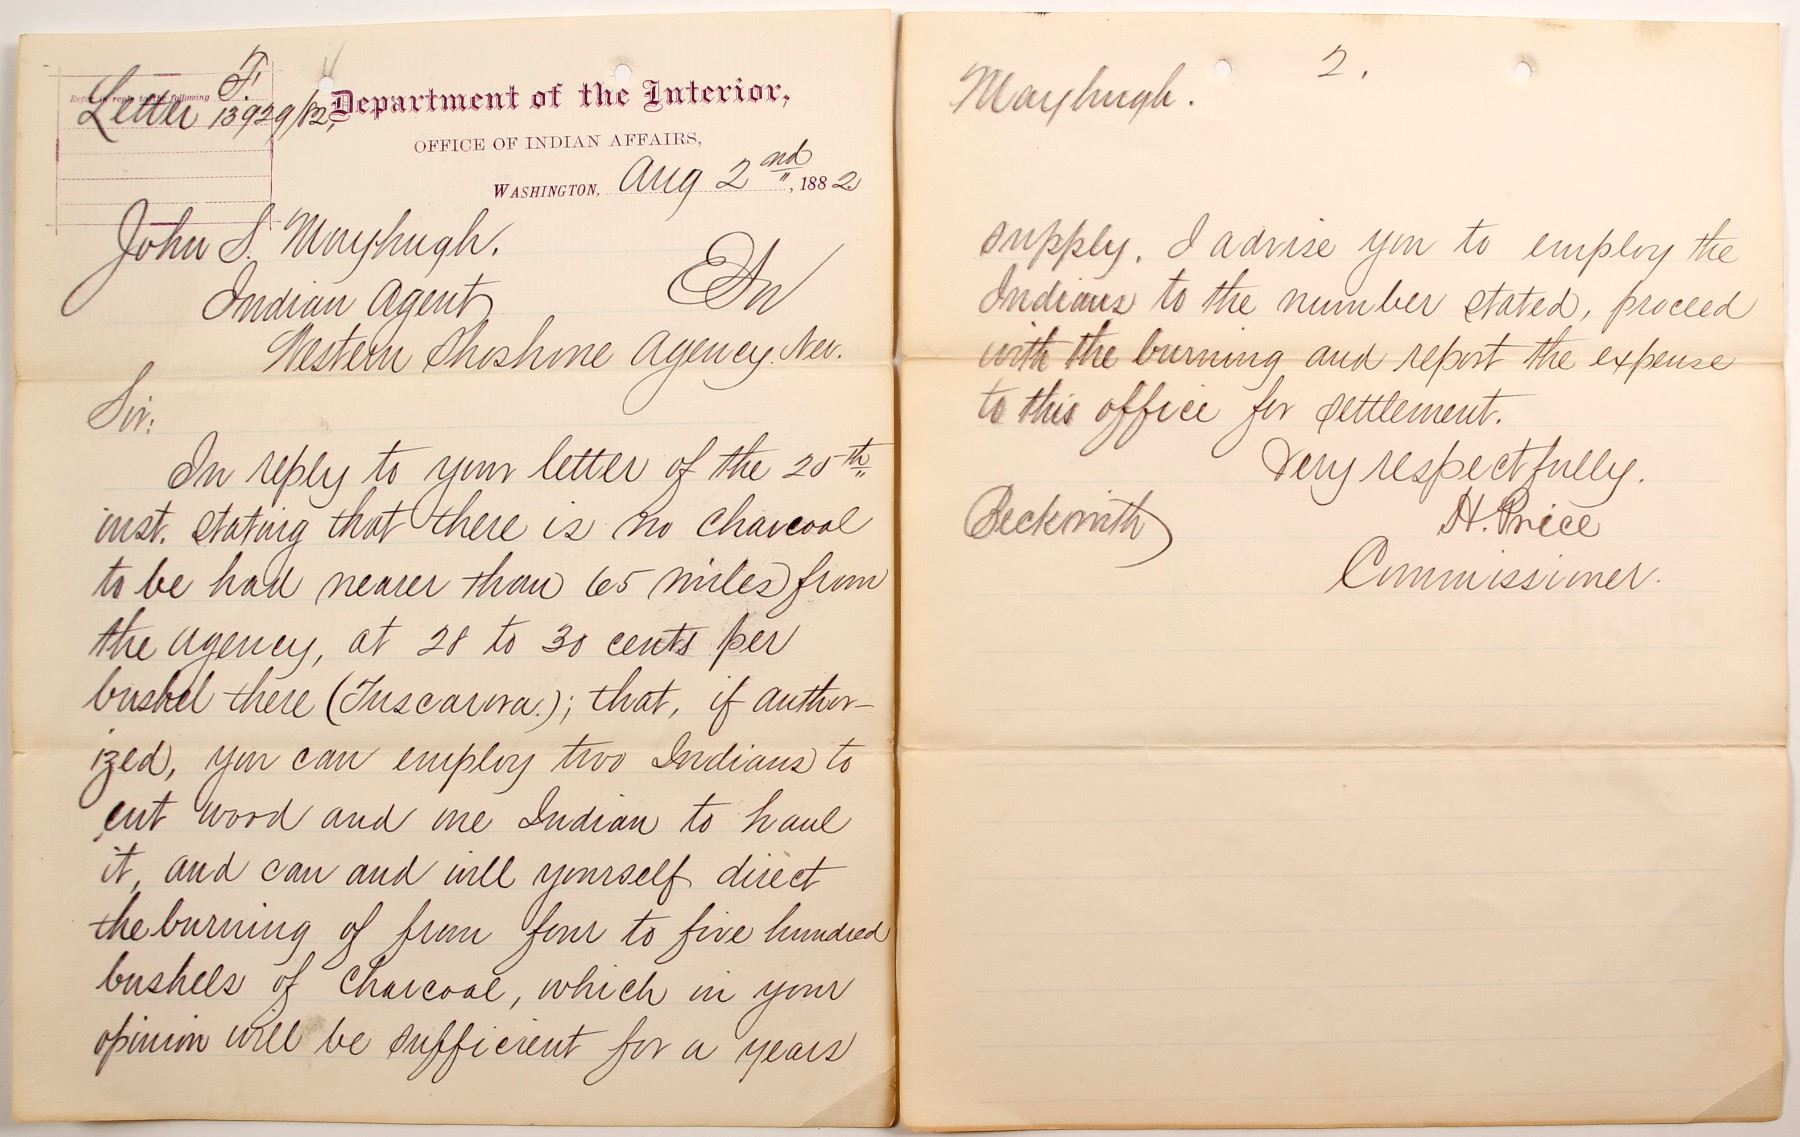 F.
Refer in reply to the following
Letter 13929/82,
Department of the Interior,
OFFICE OF INDIAN AFFAIRS,
WASHINGTON, Aug 2nd, 1882
John S. Mayhugh.
Indian Agent
Western Shoshone Agency. Nev.
Sir:
In reply to your letter of the 25th
inst. stating that there is no charcoal
to be had nearer than 65 miles from
the agency, at 28 to 30 cents per
bushel there (Tuscarora.); that, if author-
ized, you can employ two Indians to
cut wood and one Indian to haul
it, and can and will yourself direct
the burning of from four to five hundred
bushels of charcoal, which in your
opinion will be sufficient for a years
2.
Mayhugh.
supply. I advise you to employ the
Indians to the number stated, proceed
with the burning and report the expense
to this office for settlement.
Very respectfully.
H. Price
Commissioner.
Beckwith